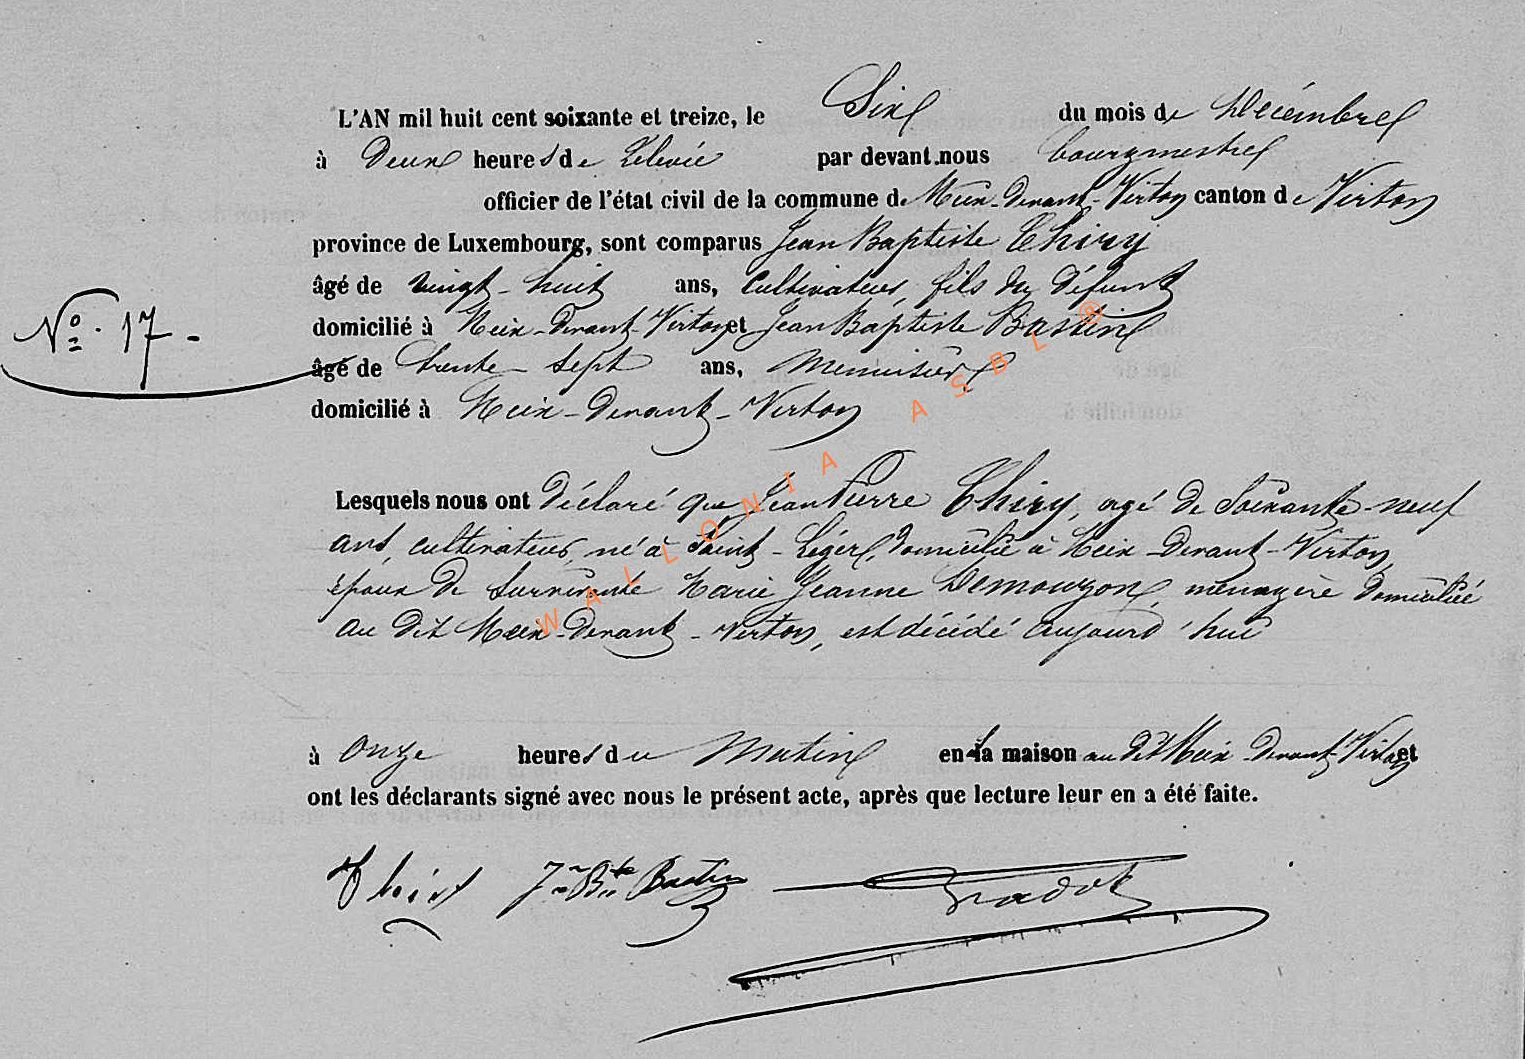 L'AN mil huit cent soixante et treize, le Six du mois de Décembre
à Deux heures de Relevée par devant nous bourgmestre
officier de l'état civil de la commune de Meix-Devant-Virton canton de Virton
province de Luxembourg, sont comparus Jean Baptiste Thiry
âgé de vingt-huit ans, Cultivateur, fils du défunt
N° 17-
domicilié à Meix-Devant-Virton et Jean Baptiste Bastin
âgé de trente-sept ans, Menuisier
domicilié à Meix-Devant-Virton
Lesquels nous ont déclaré que Jean Pierre Thiry, agé de Soixante-neuf
ans, cultivateur, né à Saint-Léger, domicilié à Meix-Devant-Virton,
époux de Survivante Marie Jeanne Demouzon, ménagère domiciliée
au dit Meix-Devant-Virton, est décédé aujourd'hui
à Onze heures du Matin en sa maison au dit Meix Devant-Virton et
ont les déclarants signé avec nous le présent acte, après que lecture leur en a été faite.
Thiry Jn Bte Bastin
WALLONIA ASBL ®